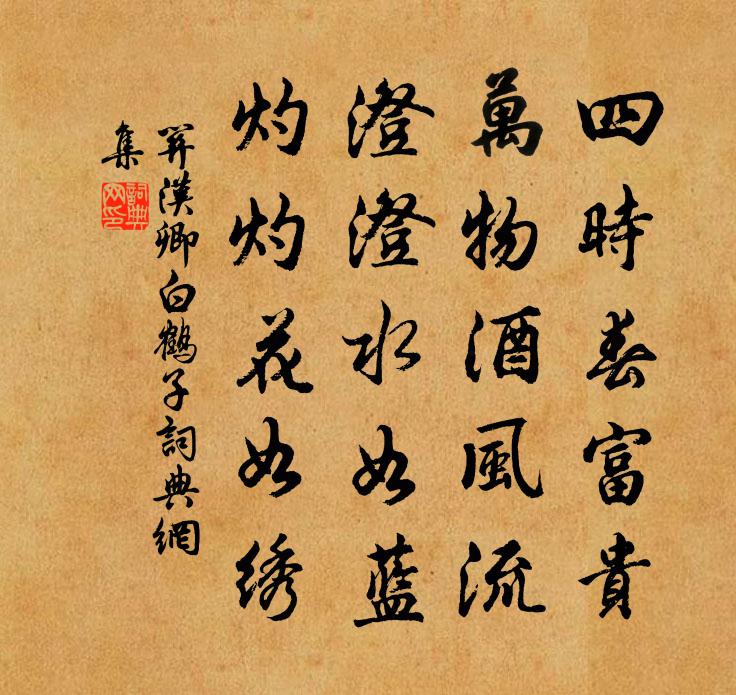 四時春富貴
萬物酒風流
澄澄水如藍
灼灼花如绣
關漢卿白鶴子詞典網
集
詞典网印